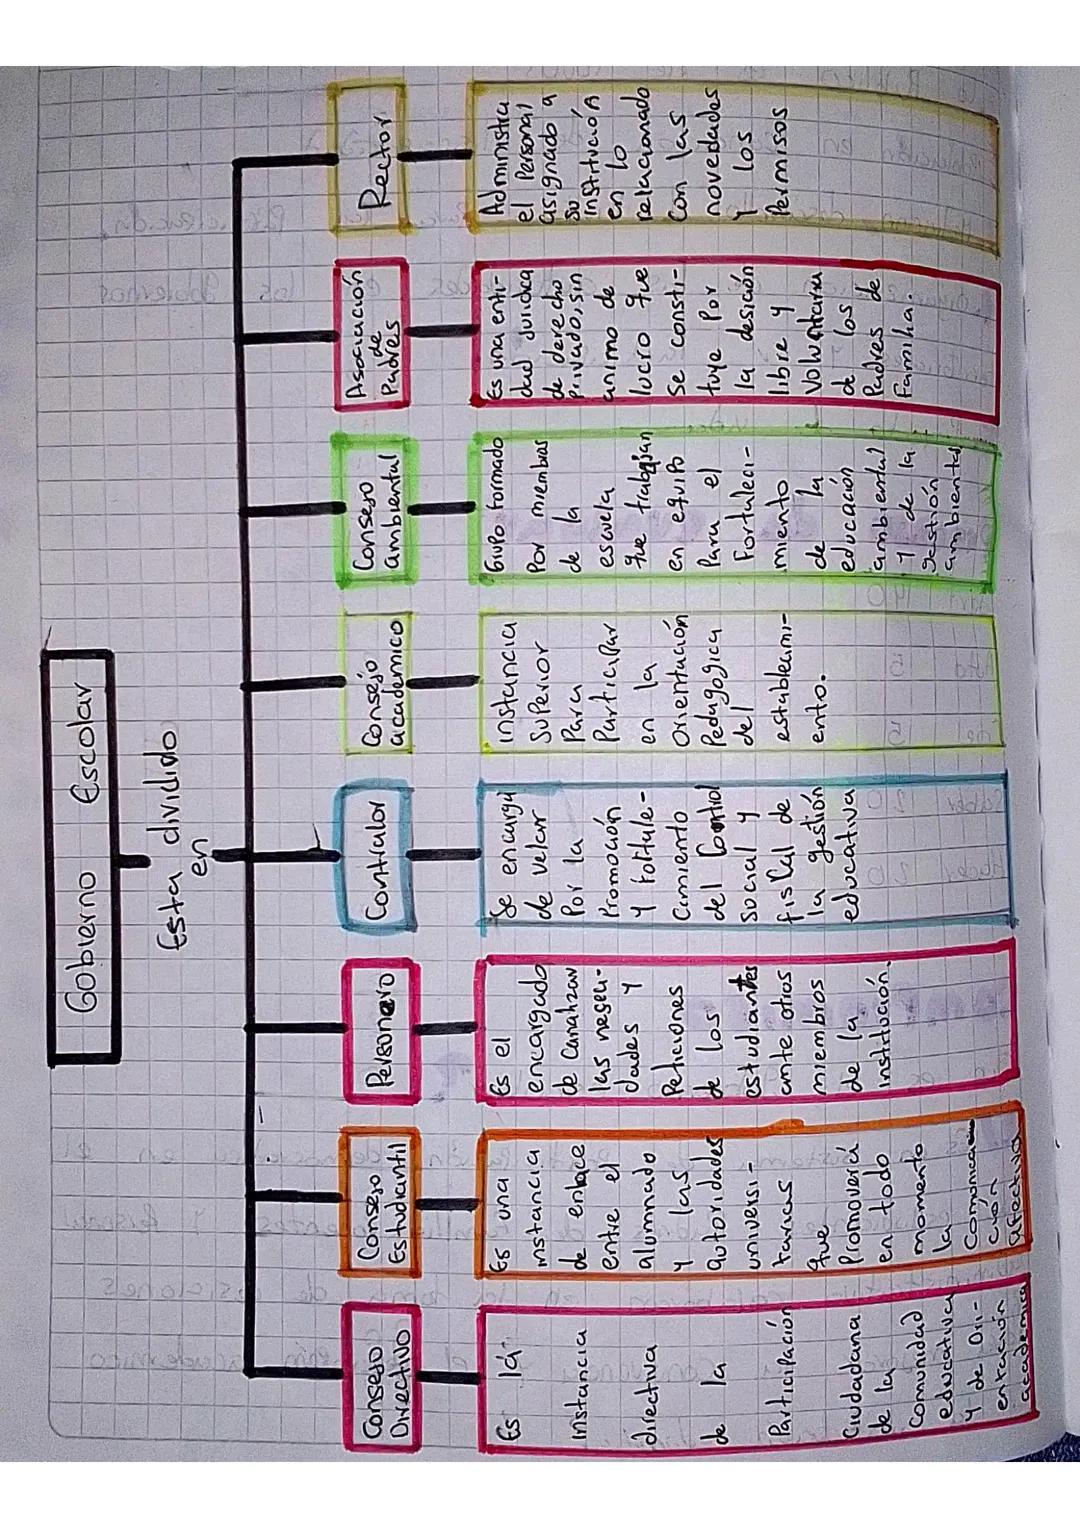 Gobierno Escolar
Esta dividido
en
Consejo
Directivo
Es la
instancia
directiva
de la
Participación
Ciudadana
de la
Comunidad
educativa
y de Ori-
entación
academica
Consejo
Estudiantil
Es una
instancia
de enlace
entre el
alumnado
y las
autoridades
universi-
tarias
que
Promoverá
en todo
momento
la
Comonica
ción
efectiva
Personero
Es el
encargado
de Canalizar
las neseci-
dades y
Peticiones
de los
estudiantes
ante otros
miembros
de la
institución.
Contralor
Se encarga
de velar
Por la
Promoción
y fortale-
cimiento
del Control
social y
fiscal de
la gestión
educativa
Consejo
academico
instancia
Superior
Para
Participar
en la
Orientación
Pedagogica
del
establecimi-
ento.
Consejo
ambiental
Grupo formado
Por miembros
de la
escuela
que trabajan
en equipo
Para el
Fortaleci-
miento
de la
educación
ambiental
y de la
gestión
ambiental
Asociación
de
Padres
Es una enti-
dad juridica
de derecho
Privado, sin
animo de
lucro que
Se consti-
tuye Por
la desición
libre y
Voluntaria
de los
Padres de
Familia.
Rector
Administra
el Personal
asignado a
su
institución
en lo
relacionado
Con las
novedades
y los
Permisos